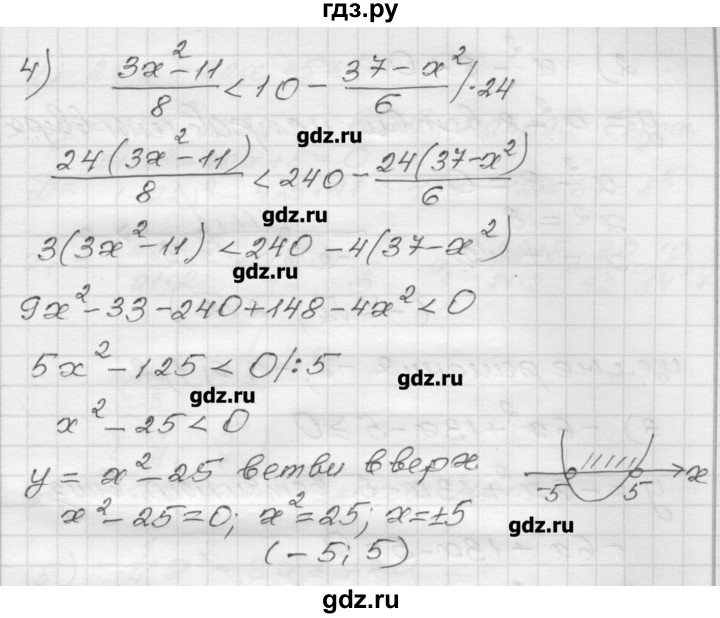 гдз.ру
4) (3x² - 11)/8 < 10 - (37 - x²)/6 /·24
gdz.ru
24(3x² - 11)/8 < 240 - 24(37 - x²)/6
gdz.ru
3(3x² - 11) < 240 - 4(37 - x²)
gdz.ru
9x² - 33 - 240 + 148 - 4x² < 0
5x² - 125 < 0 /:5
gdz.ru gdz.ru
x² - 25 < 0
y = x² - 25 ветви вверх
-5 5 x
x² - 25 = 0; x² = 25; x = ±5
gdz.ru
(-5; 5)
gdz.ru